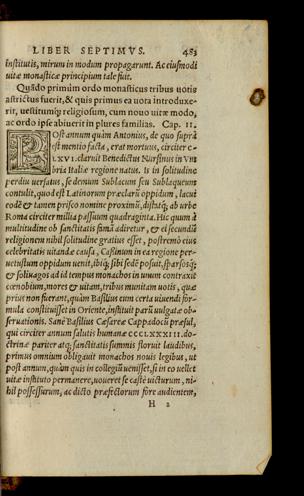 LIBER SEPTIMVS. 483
institutis, mirum in modum propagarunt. Ac eiusmodi
uitæ monasticæ principium tale fuit.
Quãdo primùm ordo monasticus tribus uotis
astrictus fuerit, & quis primus ea uota introduxe-
rit, uestitumq́; religiosum, cum nouo uitæ modo,
ac ordo ipse abierit in plures familias. Cap. II.
POst annum quàm Antonius, de quo suprà
est mentio facta, erat mortuus, circiter c-
LXVI. claruit Benedictus Nursinus in Vm
bria Italiæ regione natus. Is in solitudine
perdiu uersatus, se demum Sublacum seu Sublaqueum
contulit, quod est Latinorum præclarũ oppidum, lacui
eodẽ & tamen prisco nomine proximũ, distatq́; ab urbe
Roma circiter millia passuum quadraginta. Hic quum à
multitudine ob sanctitatis famã adiretur, & ei secundũ
religionem nihil solitudine gratius esset, postremò eius
celebritatis uitandæ causa, Cassinum in ea regione per-
uetustum oppidum uenit, ibiq́; sibi sedẽ posuit, sparsosq́;
& soliuagos ad id tempus monachos in unum contraxit
cœnobium, mores & uitam, tribus munitam uotis, quæ
prius non fuerant, quàm Basilius eum certa uiuendi for-
mula constituisset in Oriente, instituit parũ uulgatæ ob-
seruationis. Sanè Basilius Cæsareæ Cappadocũ præsul,
qui circiter annum salutis humanæ CCCLXXXIII. do-
ctrinæ pariter atq; sanctitatis summis floruit laudibus,
primus omnium obligauit monachos nouis legibus, ut
post annum, quàm quis in collegiũ uenisset, si in eo uellet
uitæ instituto permanere, uoueret se castè uicturum, ni-
hil possessurum, ac dicto præfectorum fore audientem,
H 2